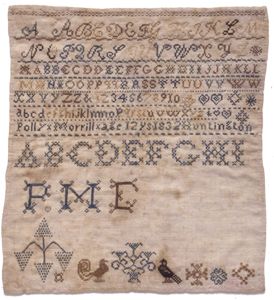 A A B C D E F G H I K L M
N O P Q R S T U V W X Y
A A B B C C D D E E F F G G H H I I J J K K L L
M M N N O O P P Q Q R R S S T T U U V V
X X Y Y Z Z & & 1 2 3 4 5 6 7 8 9 10
a b c d e f g h i j k l m n o p q r s t u v w x y z
Polly Morrill age 12 ys 1832 Huntington
A B C D E F G H I
P. M E